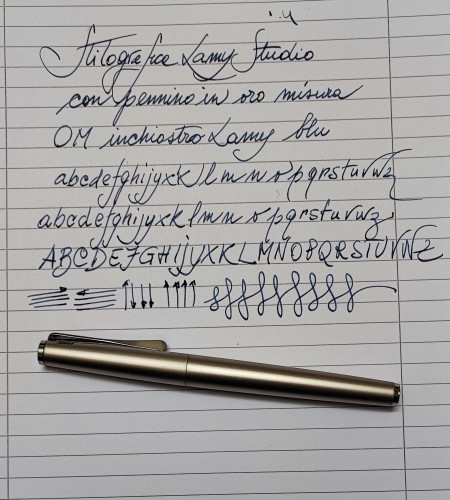 Stilografica Lamy Studio
con pennino in oro misura
OM inchiostro Lamy blu
abcdefghijyxklmnopqrstuvwz
abcdefghijyxklmnopqrstuvwz
ABCDEFGHIJYXKLMNOPQRSTUVWZ